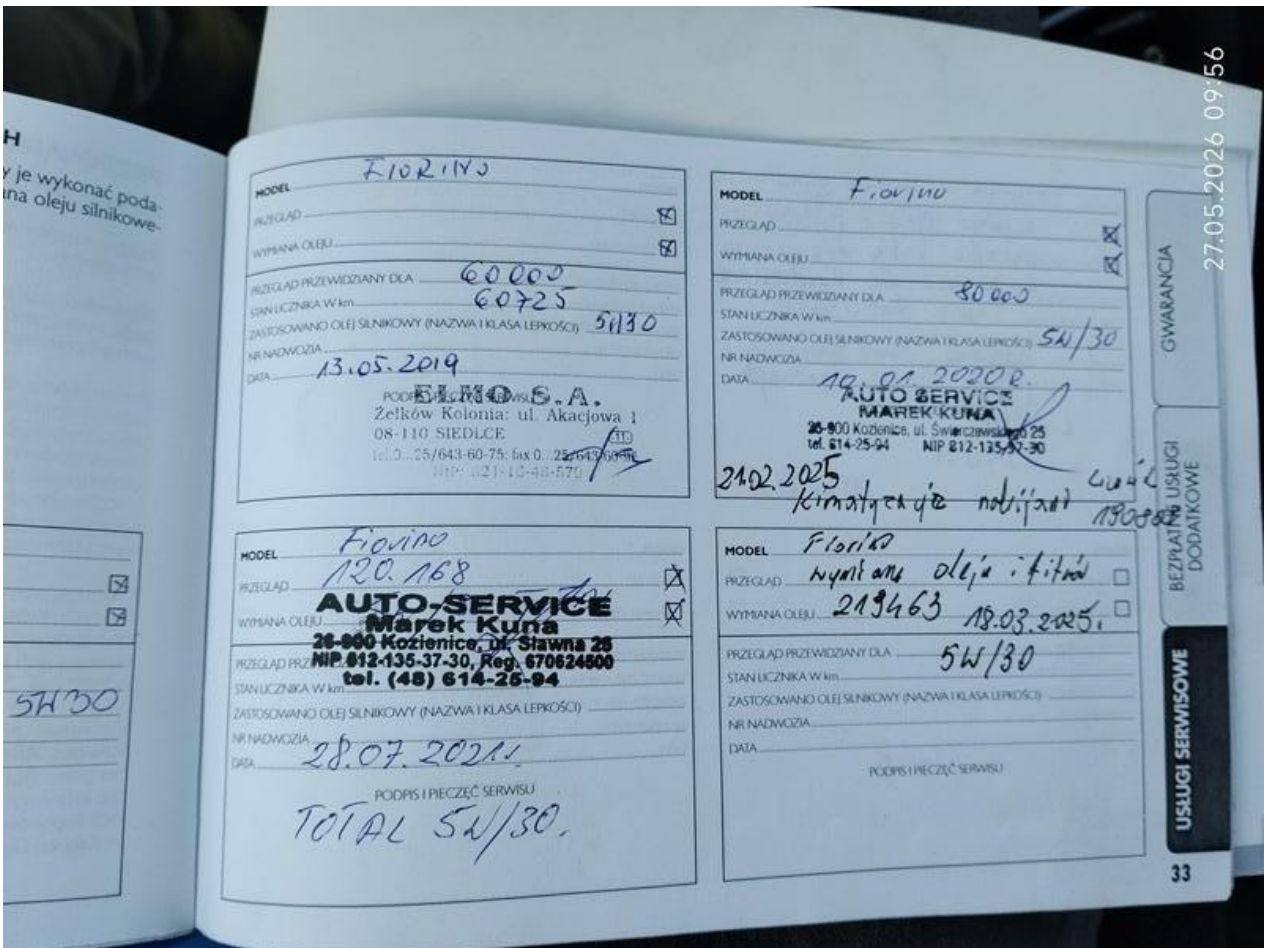 27.05.2026 09:56
H
y je wykonać poda-
ana oleju silnikowe-
5W30
MODEL FIORINO
PRZEGLĄD
WYMIANA OLEJU
PRZEGLĄD PRZEWIDZIANY DLA 60 000
STAN LICZNIKA W km 60725
ZASTOSOWANO OLEJ SILNIKOWY (NAZWA I KLASA LEPKOŚCI) 5W30
NR NADWOZIA
DATA 13.05.2019
PODPIS I PIECZĘĆ SERWISU
ELMO S.A.
Żelków Kolonia: ul. Akacjowa 1
08-110 SIEDLCE
MODEL Fiorino
PRZEGLĄD
WYMIANA OLEJU
PRZEGLĄD PRZEWIDZIANY DLA 80 000
STAN LICZNIKA W km
ZASTOSOWANO OLEJ SILNIKOWY (NAZWA I KLASA LEPKOŚCI) 5W/30
NR NADWOZIA
DATA 10.01.2020r.
AUTO SERVICE
MAREK KUNA
26-900 Kozienice, ul. Świerczewskiego 25
tel. 614-25-94 NIP 812-135-37-30
21.02.2025
MODEL Fiorino
PRZEGLĄD 120.168
WYMIANA OLEJU
AUTO-SERVICE
Marek Kuna
26-900 Kozienice, ul. Sławna 25
NIP 812-135-37-30, Reg. 670624500
tel. (48) 614-25-94
PRZEGLĄD
STAN LICZNIKA W km
ZASTOSOWANO OLEJ SILNIKOWY (NAZWA I KLASA LEPKOŚCI)
NR NADWOZIA
DATA 28.07.2021r.
PODPIS I PIECZĘĆ SERWISU
TOTAL 5W/30.
MODEL Fiorino
PRZEGLĄD wymiana oleju i
WYMIANA OLEJU 219463 18.03.2025.
PRZEGLĄD PRZEWIDZIANY DLA 5W/30
STAN LICZNIKA W km
ZASTOSOWANO OLEJ SILNIKOWY (NAZWA I KLASA LEPKOŚCI)
NR NADWOZIA
DATA
PODPIS I PIECZĘĆ SERWISU
GWARANCJA
BEZPŁATNE USŁUGI
DODATKOWE
USŁUGI SERWISOWE
33